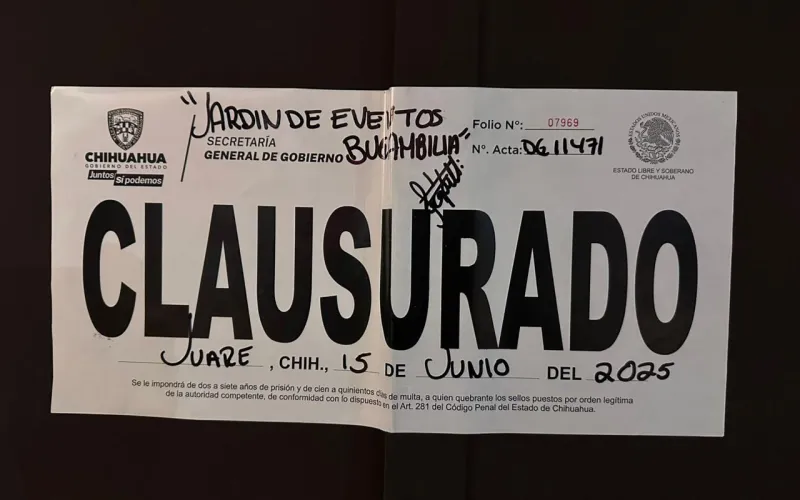 "JARDIN DE EVENTOS
BUGAMBILIA"
CHIHUAHUA
GOBIERNO DEL ESTADO
Juntos Sí podemos
SECRETARÍA
GENERAL DE GOBIERNO
Folio N°: 07969
N°. Acta: DG 11471
ESTADOS UNIDOS MEXICANOS
ESTADO LIBRE Y SOBERANO
DE CHIHUAHUA
CLAUSURADO
JUARE, CHIH., 15 DE JUNIO DEL 2025
Se le impondrá de dos a siete años de prisión y de cien a quinientos días de multa, a quien quebrante los sellos puestos por orden legítima
de la autoridad competente, de conformidad con lo dispuesto en el Art. 281 del Código Penal del Estado de Chihuahua.